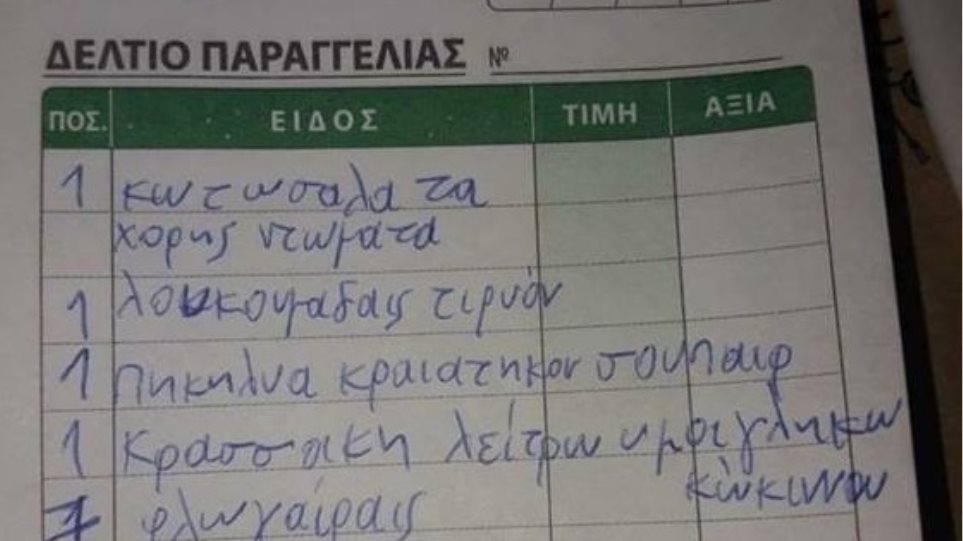 ΔΕΛΤΙΟ ΠΑΡΑΓΓΕΛΙΑΣ Νº
ΠΟΣ. ΕΙΔΟΣ ΤΙΜΗ ΑΞΙΑ
1 κωτωσαλα τα
χορης ντωματα
1 λουκουμαδαις τιρυόν
1 πηκηλυα κραιατηκον σουπαιρ
1 κρασσακη λείτρω ημοιγληκω
κώκινου
1 φλωγαίραις